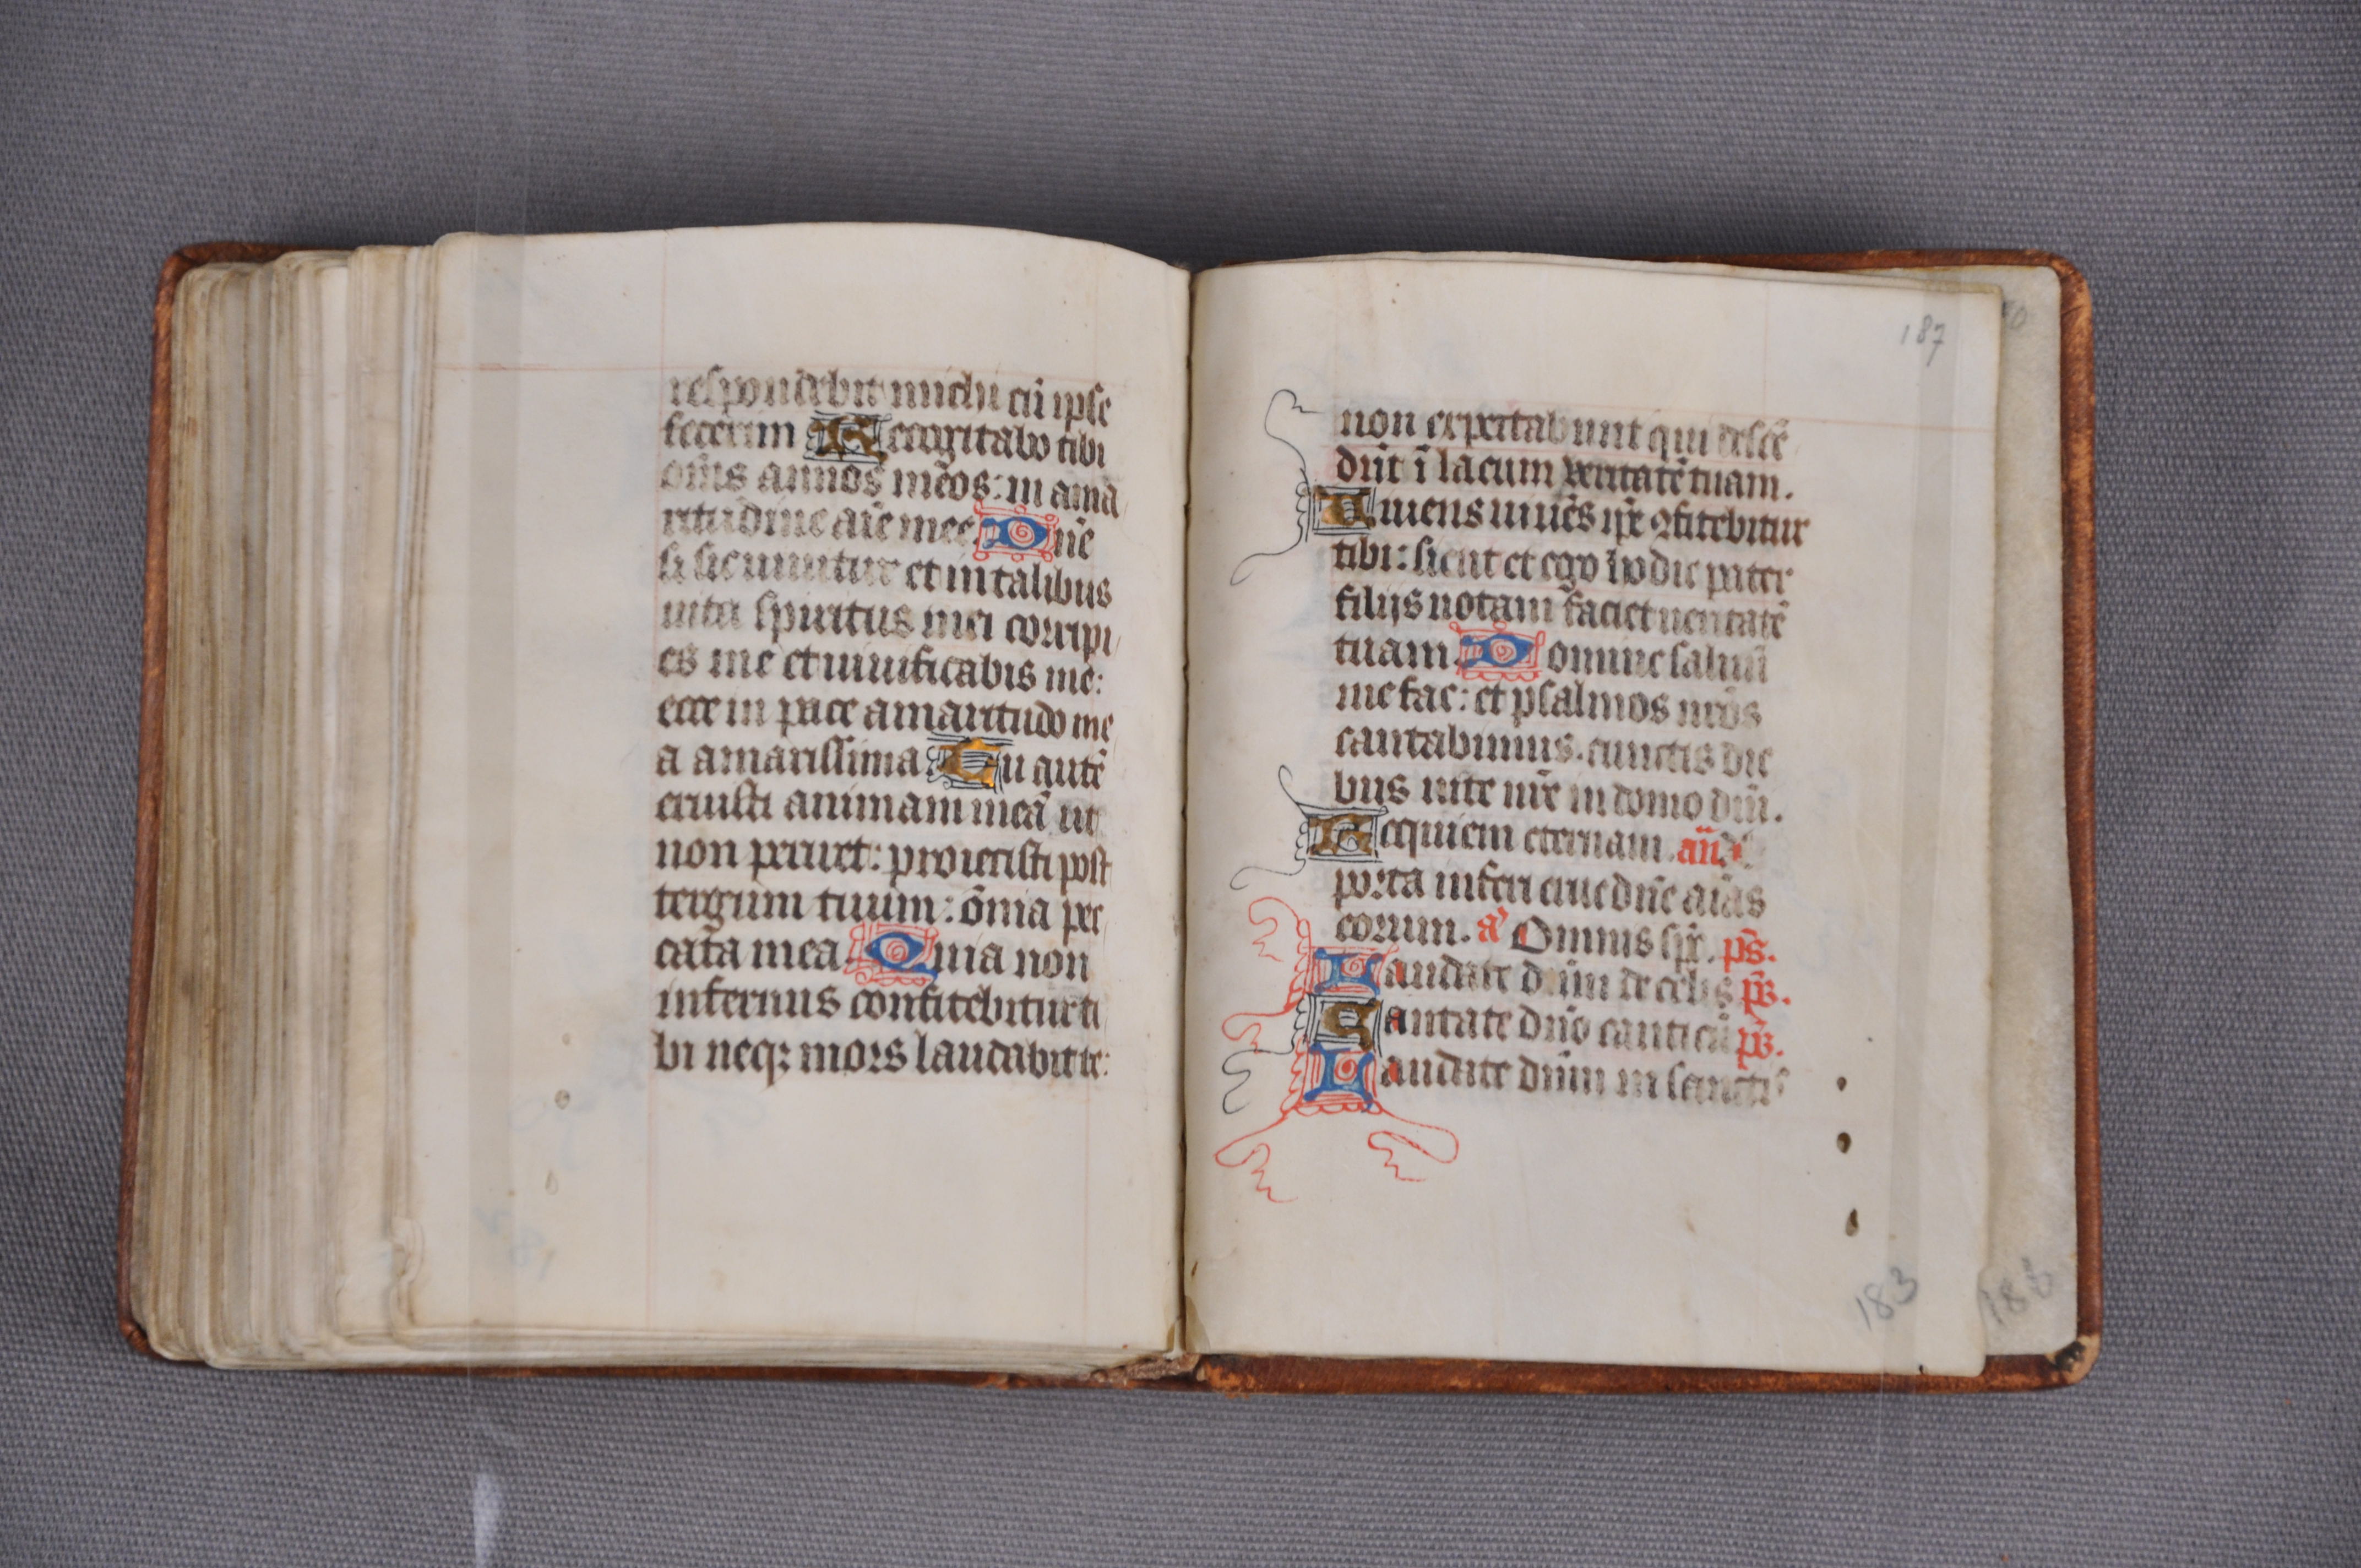 respondebit michi cū ipse
fecerim Recogitabo tibi
om̄s annos meos: in ama
ritudine aīe mee. Dn̄e
si sic uiuitur et in talibus
uita spiritus mei corripi
es me et uiuificabis me:
ecce in pace amaritudo me
a amarissima. Tu autē
eruisti animam meā ut
non periret: proiecisti post
tergum tuum: om̄ia pec
cata mea. Quia non
infernus confitebitur ti
bi neqꝫ mors laudabit te:
187
non expectabunt qui descē
dūt ī lacum veritatē tuam.
Viuens uiuēs ip̄e ꝯfitebitur
tibi: sicut et ego hodie pater
filijs notam faciet ueritatē
tuam. Domine saluū
me fac: et psalmos nr̄os
cantabimus. cunctis die
bus uite nr̄e in domo dn̄i.
Requiem eternam. an̄
porta inferi erue dn̄e aīas
eorum. a' Omnis sp̄c. ps̄.
Laudate dn̄m de celis ps̄.
Cantate dn̄o canticū ps̄.
Laudate dn̄m in sanctis
183